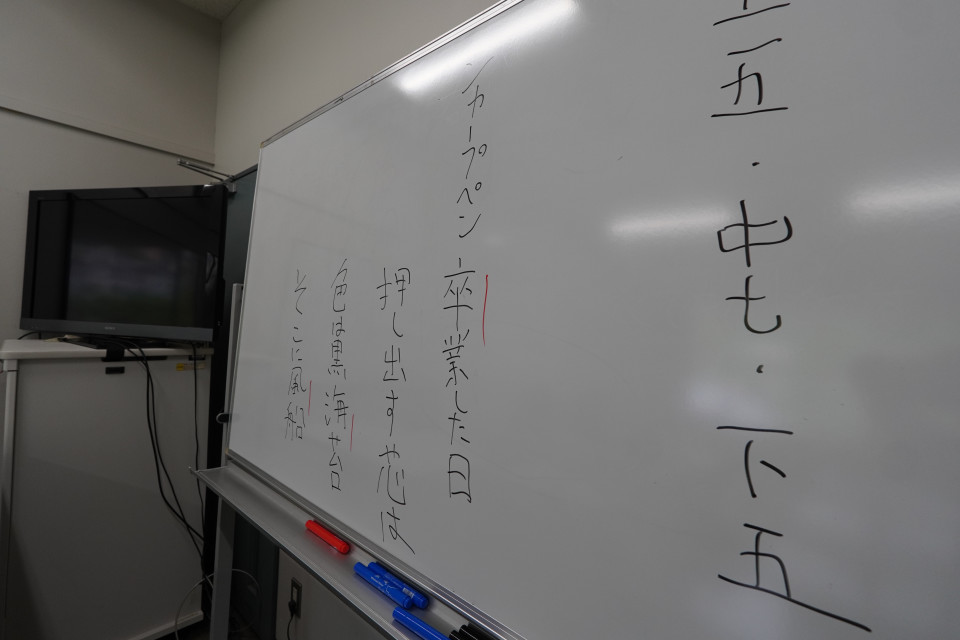 上五・中七・下五
シャープペン 卒業した日
押し出す芯は
色は黒海苔
そこに風船